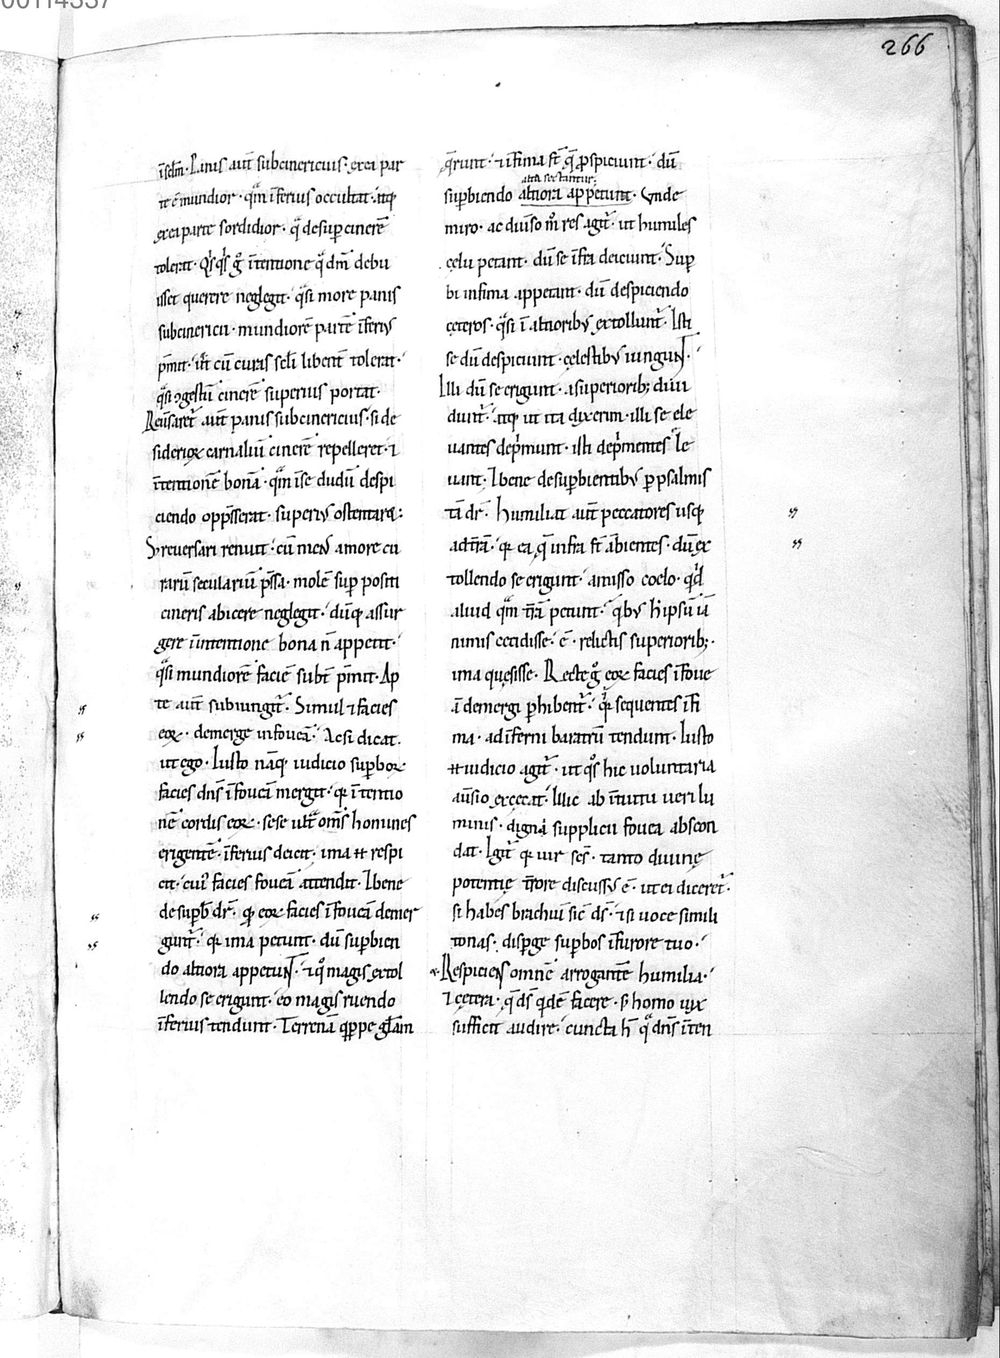 00114337
266
ısdm̄. Panis aut̄ subcinericius. ex ea par
te ē mundior. qͣm īferius occultat. atq;
ex ea parte sordidior. qͣ desup cinerē
tolerat. Qͥsqͥs gͦ īntentione qͣ dm̄ debu
isset querere neglegit. qͣsi more panis
subcinericii. mundiorē partē īferiꝰ
p̄mit. ut cū curas scłi libent̄ tolerat.
qͣsi ꝯgestū cinerē superius portat.
Reūsaret̄ aut̄ panis subcinericius. si de
sideriorꝝ carnaliū cinerē repelleret. ⁊
īntentionē bonā. qͣm īse dudū despi
ciendo opp̄sserat. superiꝰ ostentaret.
S; reversari renuit. cū mens amore cu
rarū seculariū p̄ssa. molē sup positi
cineris abicere neglegit. dūq; assur
gere in intentione bona n̄ appetit.
qͣsi mundiorē faciē subt̄ p̄mit. Ap
te aut̄ subiungit̄. Simul ⁊ facies
eoꝝ. demerge in foueā. Ac si dicat.
ut ego. Iusto nāq; iudicio supboꝝ
facies dn̄s ī foueā mergit. qꝛ īntentio
nē cordis eoꝝ. sese ult̄ om̄s homines
erigentē. īferius deicit. ima ⁊ respi
cit. cuiꝰ facies foueā attendit. Et bene
de supb̄ dr̄. qꝛ eoꝝ facies ī foueā demer
gunt̄. qꝛ ima petunt. dū supbien
do altiora appetunt. ⁊ qͦ magis extol
lendo se erigunt. eo magis ruendo
īferius tendunt. Terrenā qͥppe głam
q̄runt. ⁊ īfima st̄ q̄ pspiciunt. dū
alta sectantur.
supbiendo altiora appetunt. Unde
miro. ac diuso m̊ res agit̄. ut humiles
cęlū petant. dū se īfra deiciunt. Sup
bi infima appetant. dū despiciendo
cęteros. qͣsi ī altioribꝰ extollunt̄. Isti
se dū despiciunt. cęlestibꝰ iungunt.
Illi dū se erigunt. a superiorib; diui
dunt̄. atq; ut ita dixerim. illi se ele
uantes dep̄munt. isti dep̄mentes se le
uant. Et bene de supbientibꝰ p psalmis
tā dr̄. Humiliat aut̄ peccatores usq;
ad t̄rā. qꝛ ea q̄ infra st̄ ābientes. dū ex
tollendo se erigunt. amisso coelo. qͥd
aliud qͣm t̄rā petunt. qͥbꝰ h̄ ipsū iā
nimis cecidisse. ē. relictis superiorib;.
ima quęsisse. Recte gͦ eoꝝ facies ī foue
ā demergi phibent̄. qꝛ sequentes īfi
ma. ad īferni baratrū tendunt. Iusto
⁊ iudicio agit̄. ut qͦs hic uoluntaria
aūsio excęcat. Illic ab īntuitu ueri lu
minis. digna supplicii fouea abscon
dat. Igit̄ qꝛ uir sc̄s. tanto diuinę
potentię t̄rore discussꝰ ē. ut ei diceret̄.
si habes brachiū sic̄ ds̄. ⁊ si uoce simili
tonas. dispge supbos ī furore tuo.
Respiciens omnē arrogantē humilia.
⁊ cętera. q̄ ds̄ qͥdē facere. s; homo uix
sufficit audire. cuncta h̄ qͣ dn̄s īnten